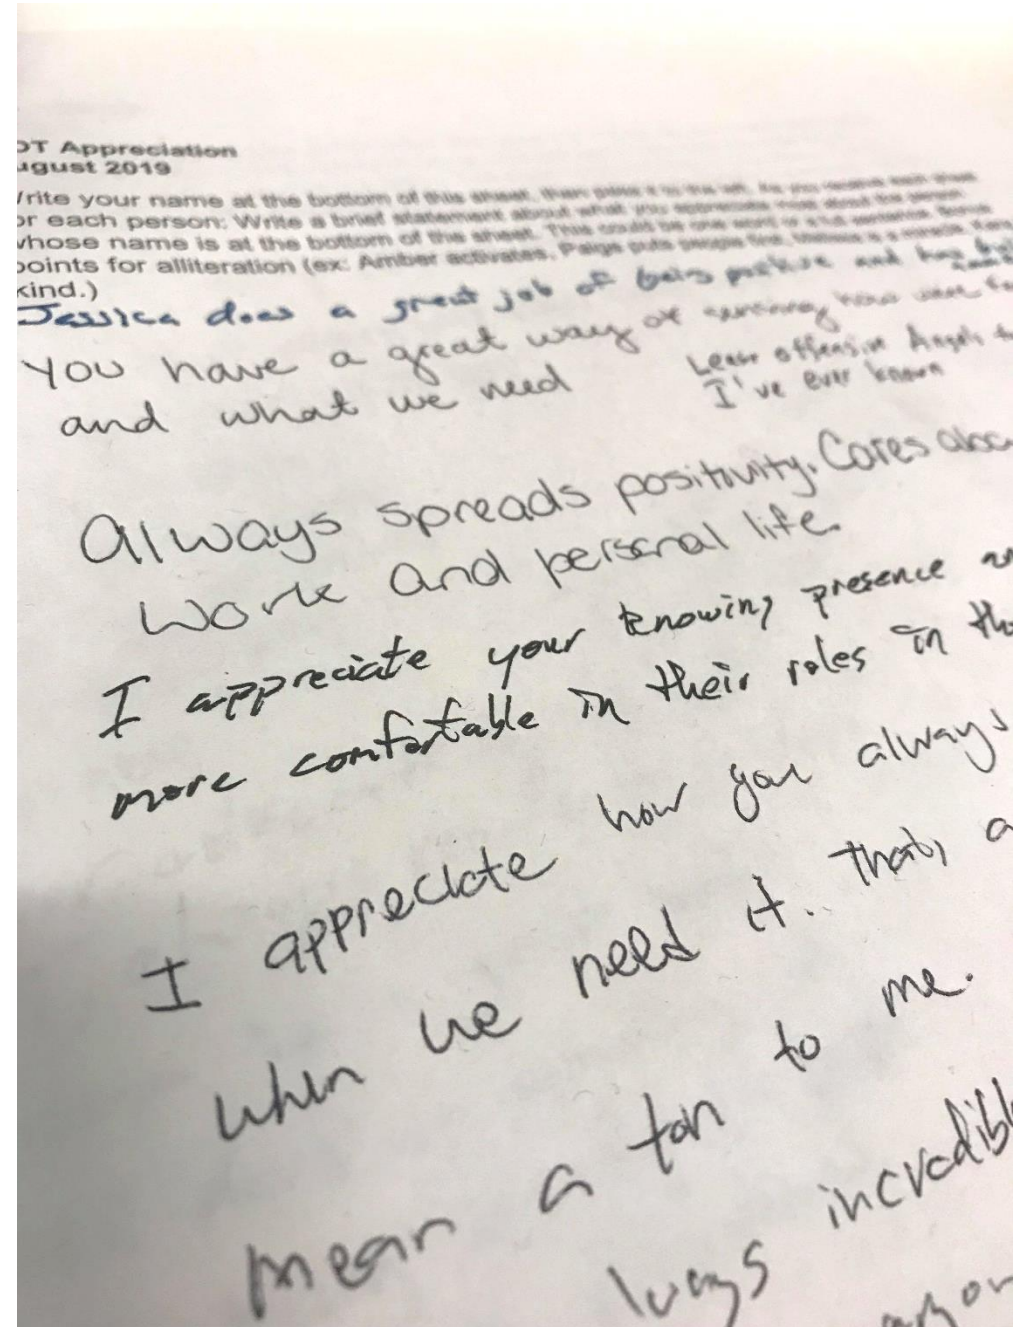 OT Appreciation
ugust 2019
rite your name at the bottom of this sheet, then pass it to the left. As you receive each sheet
or each person: Write a brief statement about what you appreciate most about the person
whose name is at the bottom of the sheet. This could be one word or a full sentence. Bonus
points for alliteration (ex: Amber activates, Paige puts people first, is a miracle,
kind.)
Jessica does a great job of being positive and has
You have a great way of sensing how we're
and what we need
Least offensive Angels
I've ever known
Always spreads positivity. Cares abo
work and personal life.
I appreciate your knowing presence
more comfortable in their roles in th
I appreciate how you always
when we need it. that, a
mean a ton to me.
ways incredibl